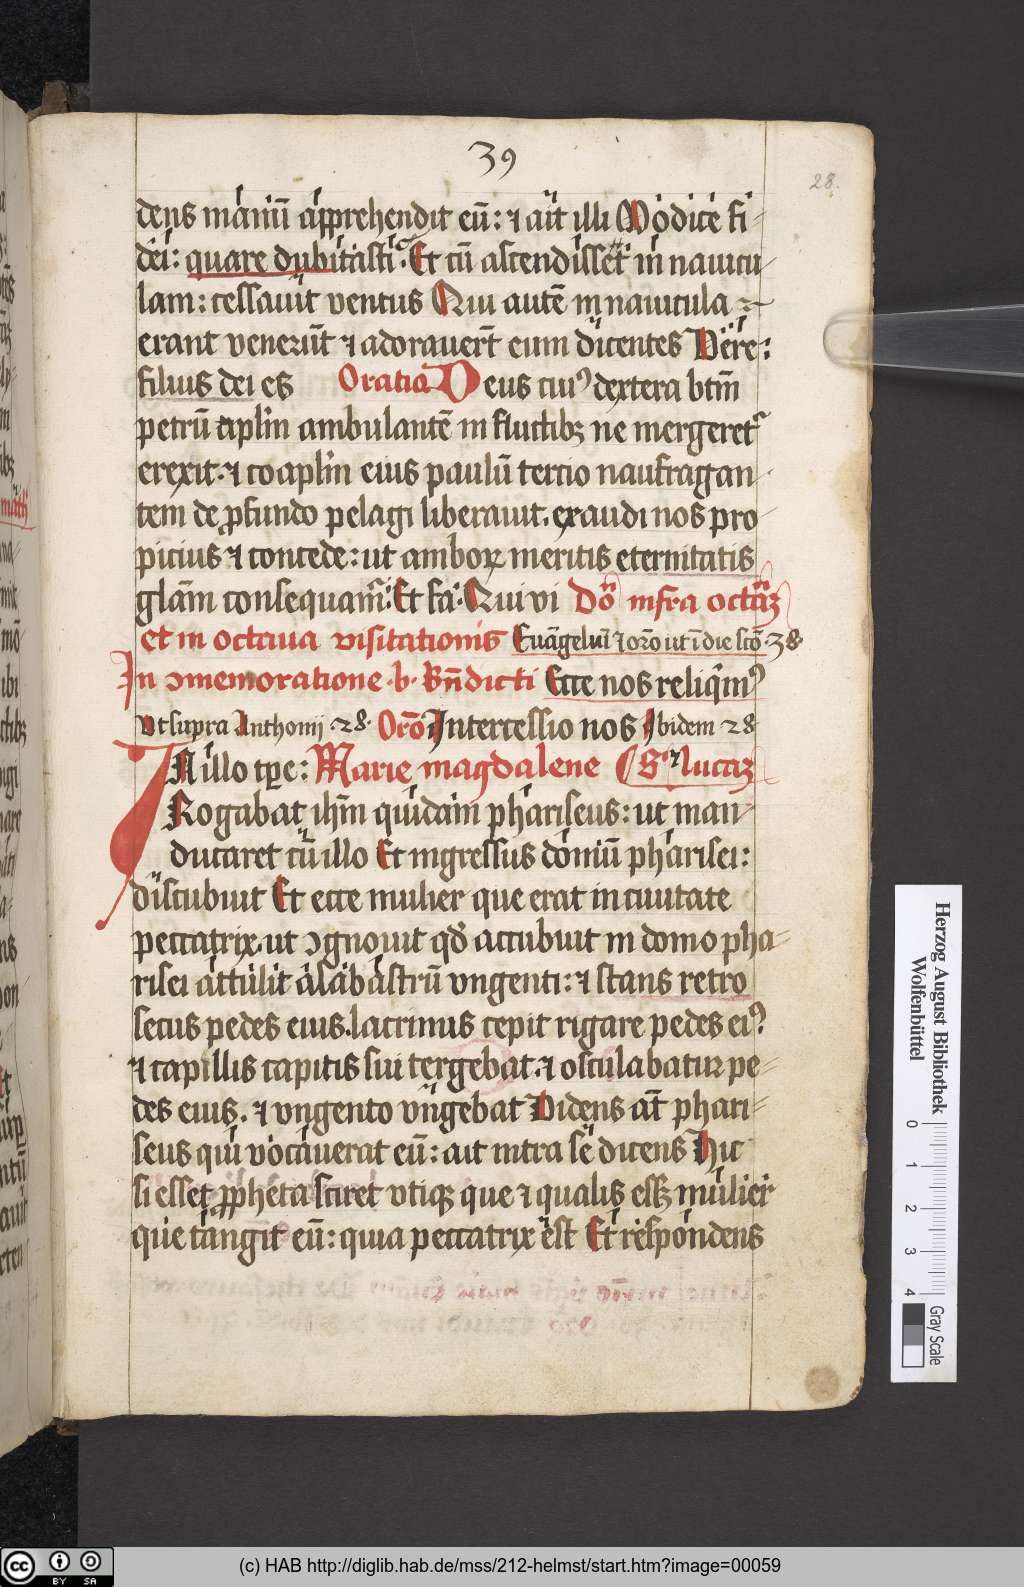 39
28.
dens manū apprehendit eū: ⁊ ait illi Modice fi-
dei: quare dubitasti. Et cū ascendisset in nauicu-
lam: cessauit ventus Qui autē in nauicula
erant venerūt ⁊ adorauerūt eum dicentes Vere:
filius dei es Oratio Deus cuiꝰ dextera btm̄
petrū aplm̄ ambulantē in fluctibꝫ ne mergeret᷑
erexit. ⁊ coaplm̄ eius paulū tercio naufragan-
tem de ꝓfundo pelagi liberauit. exaudi nos pro
picius ⁊ concede: ut amboꝝ meritis eternitatis
glām consequam᷑. Et fa. Qui vi Dō infra octaꝫ
et in octaua visitationis Euāgeliū ⁊ orō ut ī die scō. 38
In ↄmemoratione b. Bn̄dicti Ecce nos reliqimꝰ
vt supra Anthonij. 28. Orō Intercessio nos Ibidem 28
IN illo tꝑe: Marie magdalene S. Lucaꝫ
Rogabat ihm̄ quidam phariseus: ut man-
ducaret cū illo Et ingressus domū pharisei:
discubuit Et ecce mulier que erat in ciuitate
peccatrix. ut ↄgnouit qd̄ accubuit in domo pha-
risei attulit alabastrū vngenti: ⁊ stans retro
secus pedes eius. lacrimis cepit rigare pedes eiꝰ
⁊ capillis capitis sui tergebat. ⁊ osculabatur pe-
des eius. ⁊ vngento vngebat Videns aūt phari-
seus qui vocauerat eū: ait intra se dicens Hic
si esset ꝓpheta sciret vtiqꝫ que ⁊ qualis essꝫ mulier
que tangit eū: quia peccatrix est Et respondens
Herzog August Bibliothek
Wolfenbüttel
0 1 2 3 4
Gray Scale
cc BY SA
(c) HAB http://diglib.hab.de/mss/212-helmst/start.htm?image=00059